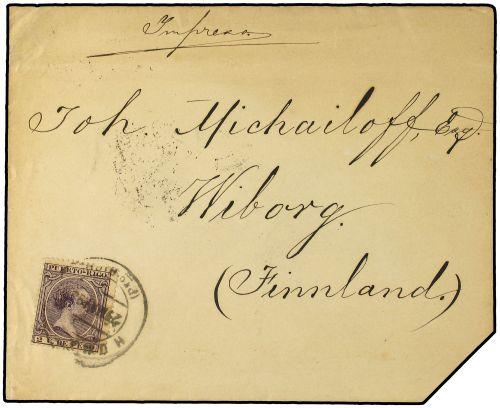 Impresos
Joh. Michailoff, Esq.
Wiborg.
(Finnland.)
PUERTO-RICO